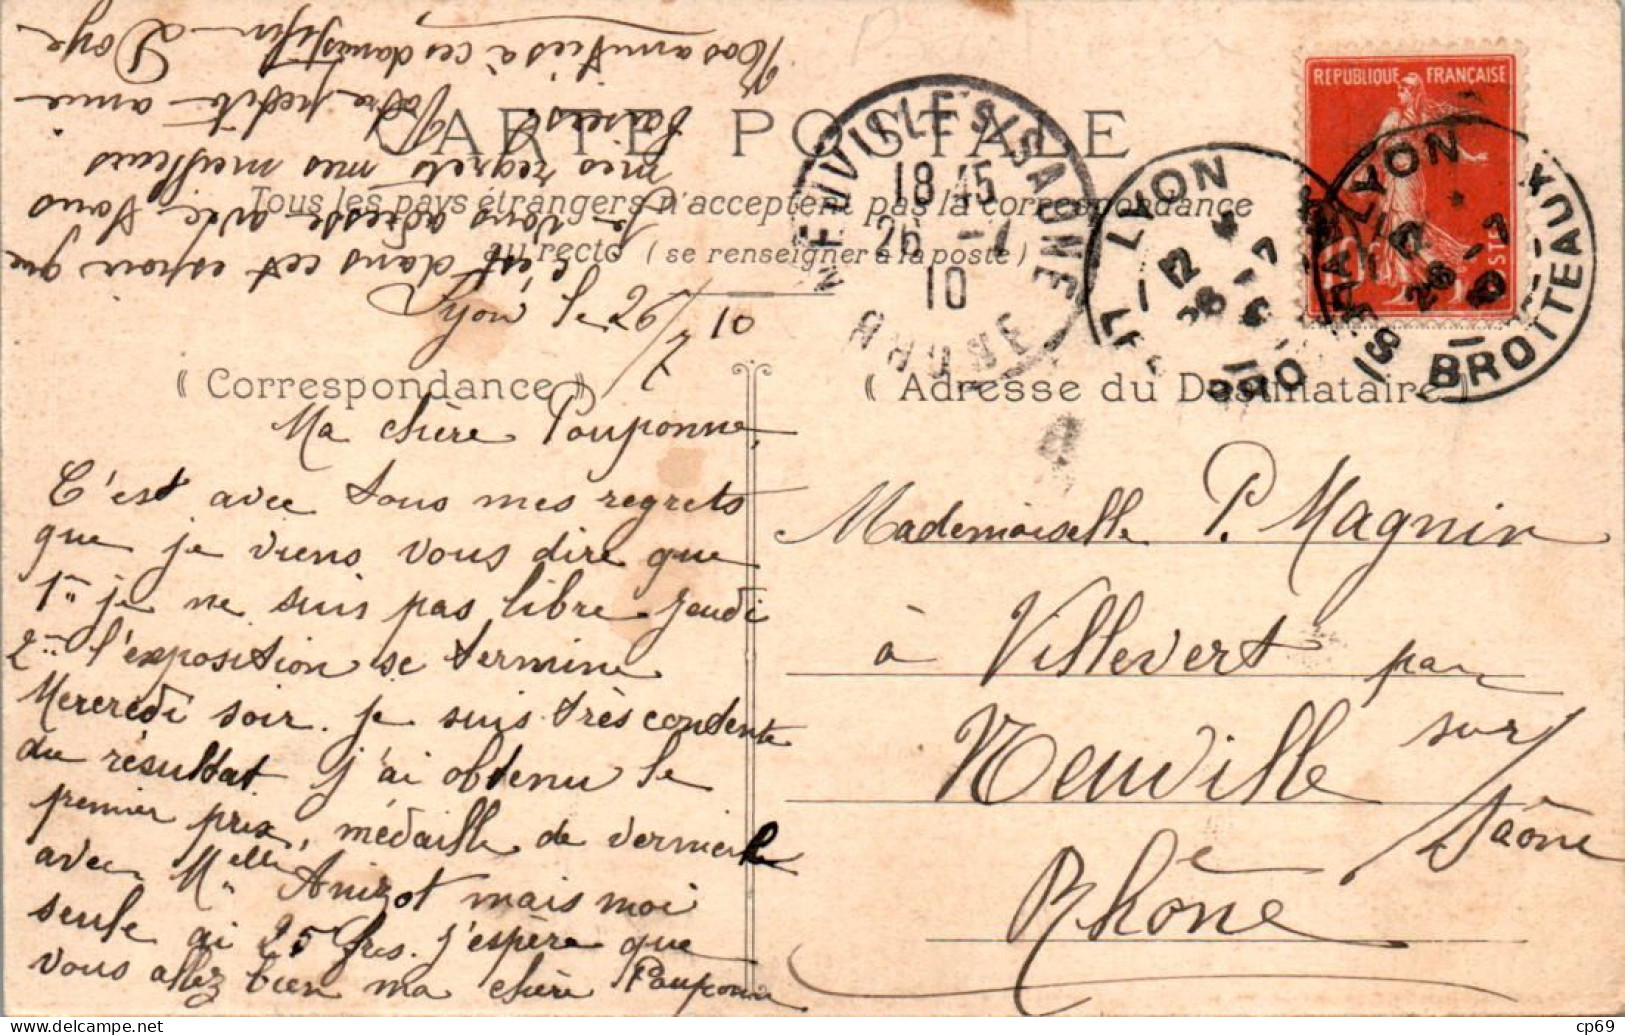 CARTE POSTALE
Tous les pays étrangers n'acceptent pas la correspondance
au recto (se renseigner à la poste)
REPUBLIQUE FRANÇAISE
NEUVILLE S/SAONE
18 45
26 -7
10
RHONE
LYON
12
LYON
BROTTEAUX
( Correspondance )
( Adresse du Destinataire )
Lyon le 26/7 10
Ma chère Pouponne,
C'est avec tous mes regrets
que je viens vous dire que
1° je ne suis pas libre Jeudi
2° l'exposition se termine
Mercredi soir. je suis très contente
du résultat j'ai obtenu le
premier prix, médaille de vermeille
avec Melle Anizot mais moi
seule ai 25 frcs. J'espère que
vous allez bien ma chère Pouponne
c'est dans cet espoir que
je vous adresse avec tous
mes regrets mes meilleurs
baisers.
Votre petite amie
Nos amitiés à ces dames
Mademoiselle P. Magnin
à Villevert par
Neuville sur
Saône
Rhône
cp69